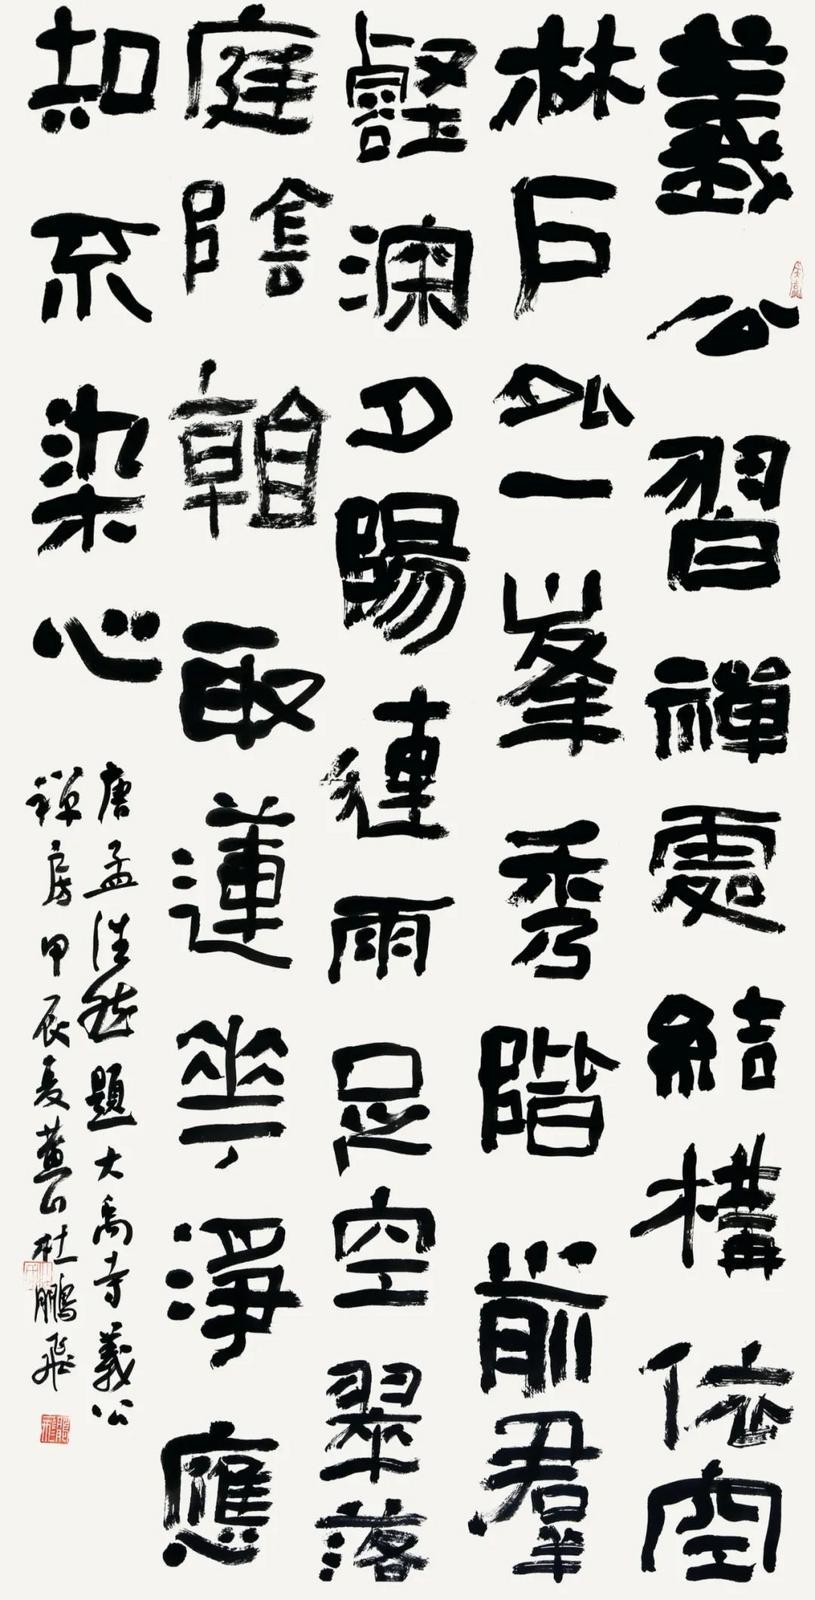 義公習禪處結構依空
林戶外一峯秀階前群
壑深夕陽連雨足空翠落
庭陰看取蓮華淨應
知不染心
唐孟浩然題大禹寺義公
禪房甲辰夏杜鵬飛